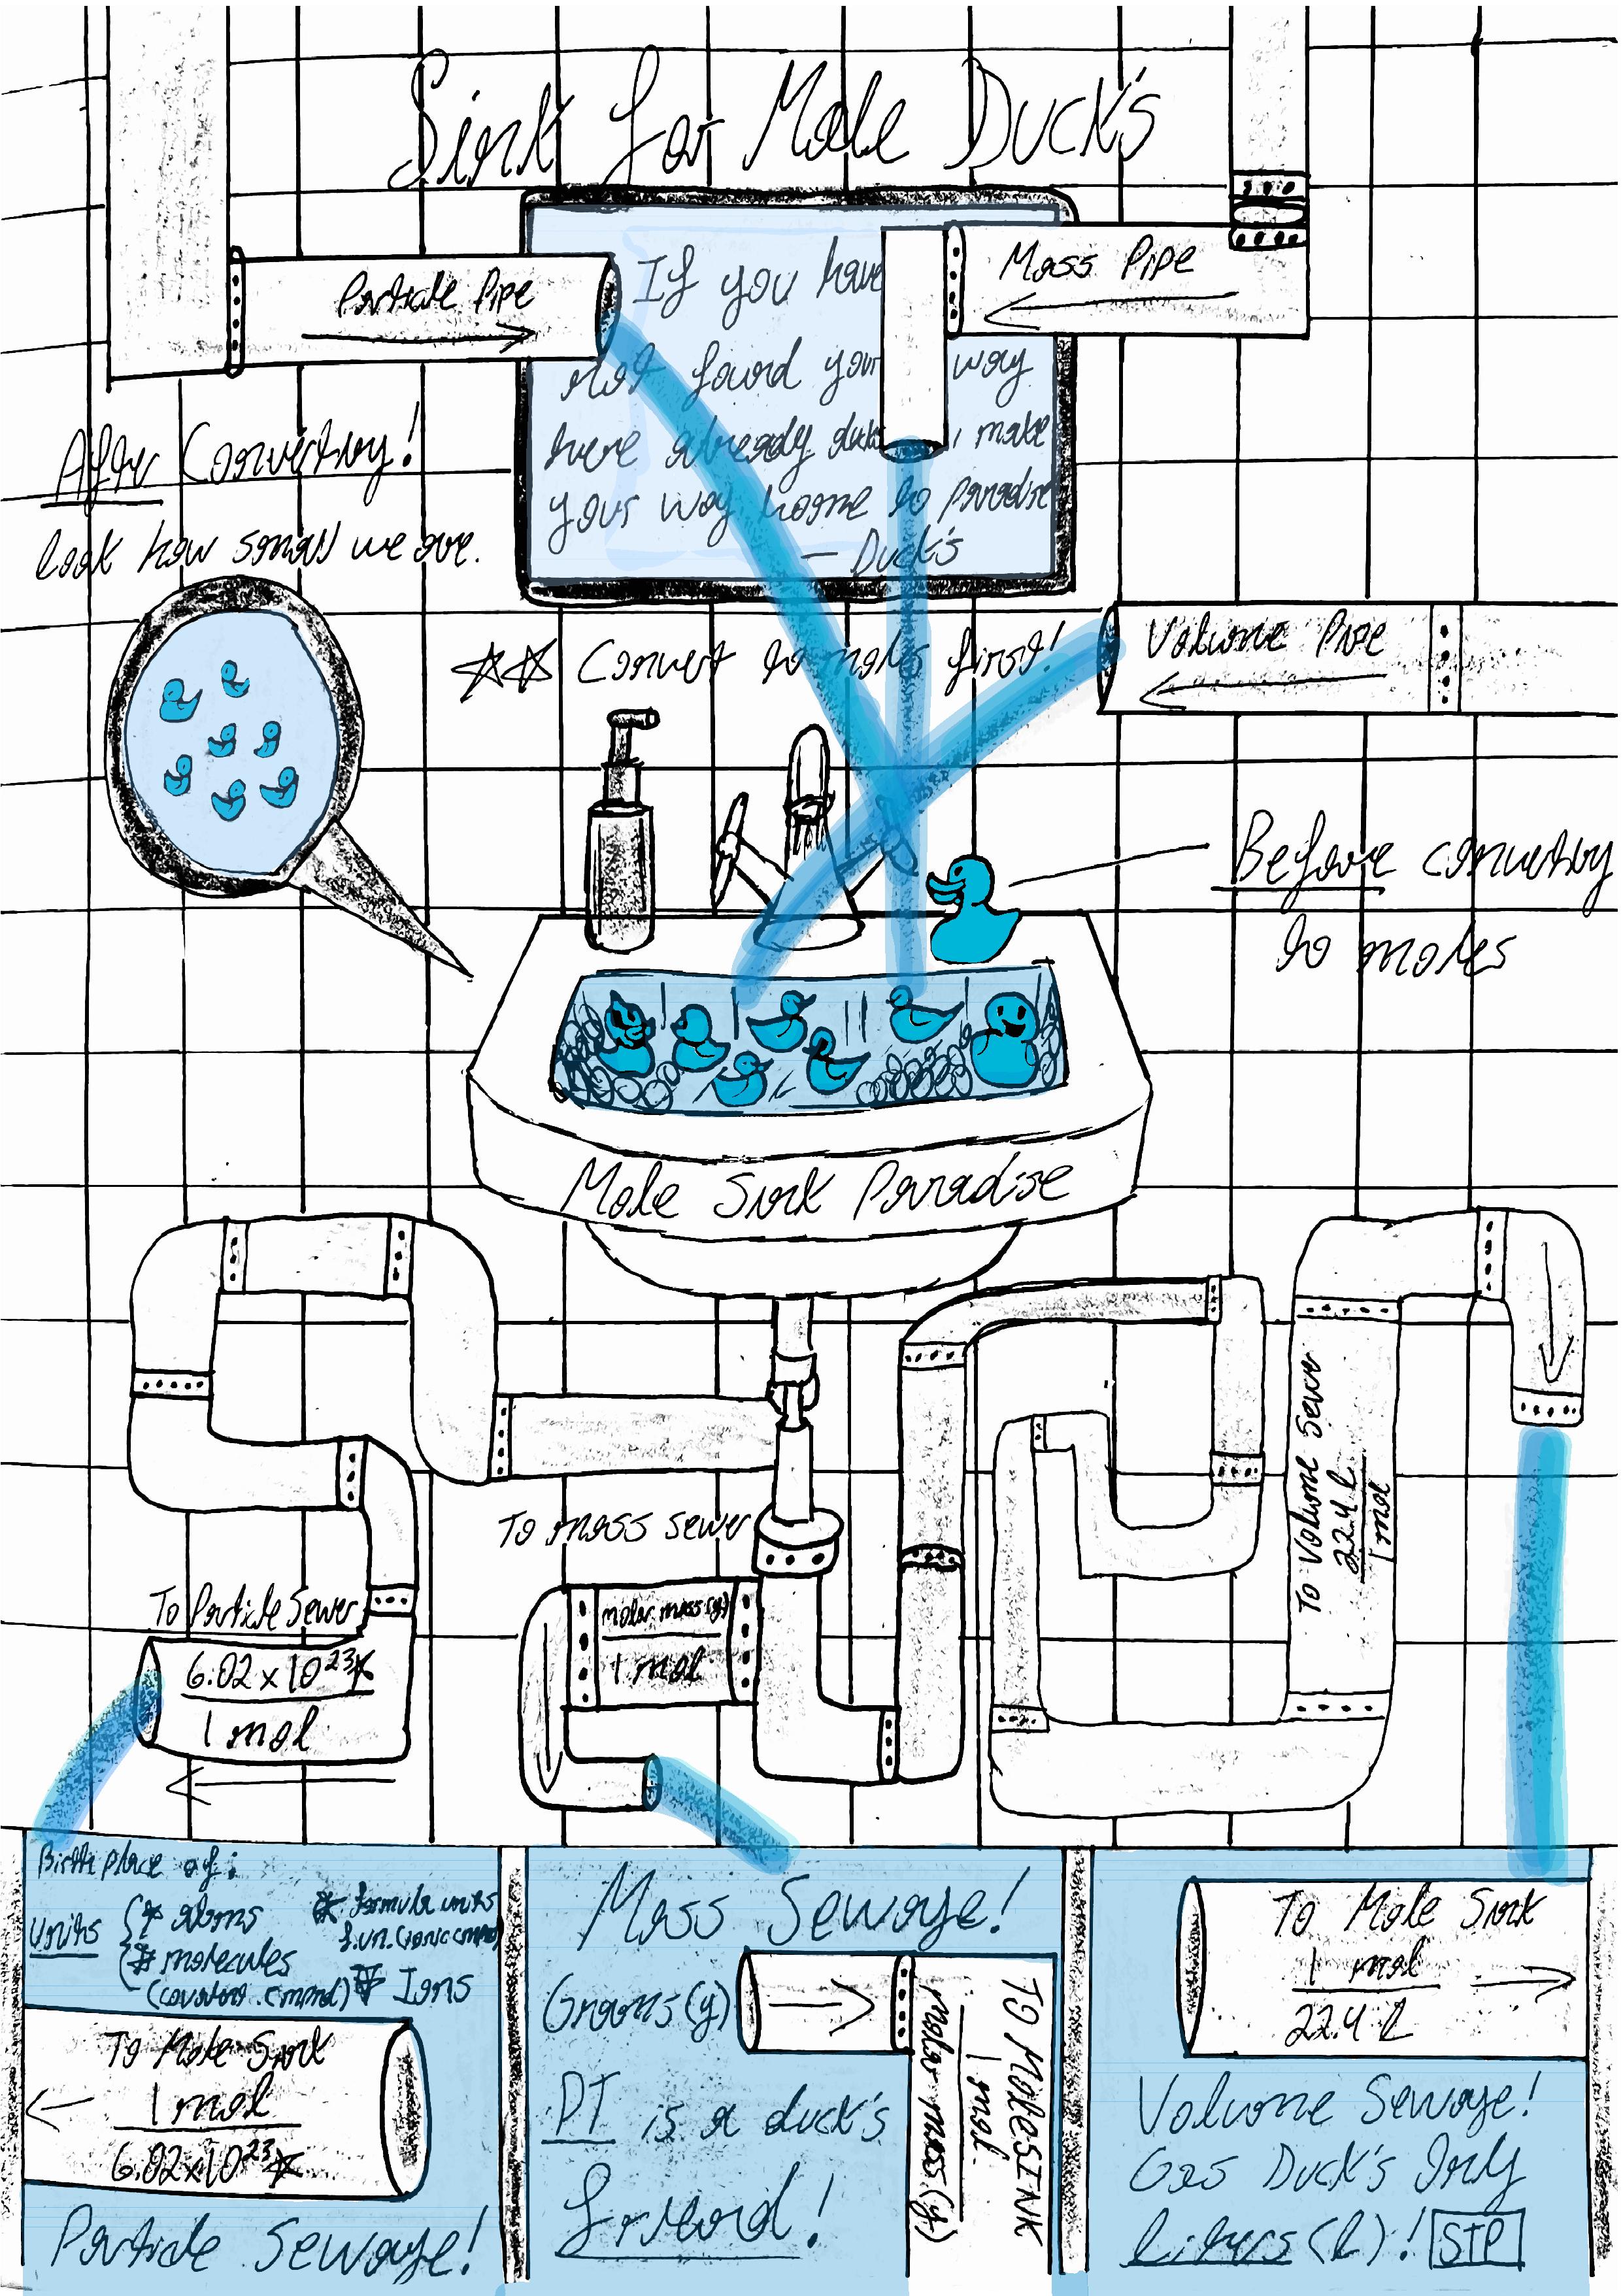 Sink for Mole Duck's
Particle Pipe
Mass Pipe
If you have
not found your way
here already duck , make
your way home to paradise
— Duck's
After Converting!
look how small we are.
☆☆ Convert to moles first!
Volume Pipe
Before converting
to moles
Mole Sink Paradise
To Volume Sewer
22.4 L
1 mol
To mass sewer
molar mass (g)
1 mol
To Particle Sewer
6.02 x 10²³ *
1 mol
Birth place of:
Units
* atoms
* molecules
(covalent. cmpd)
* formula units
f.un. (ionic cmpd)
* Ions
To Mole Sink
1 mol
6.02x10²³ *
Particle Sewage!
Mass Sewage!
Grams (g)
To Mole SINK
1 mol
molar mass (g)
PT is a duck's
friend!
To Mole Sink
1 mol
22.4 L
Volume Sewage!
Gas Duck's Only
liters (L)! STP